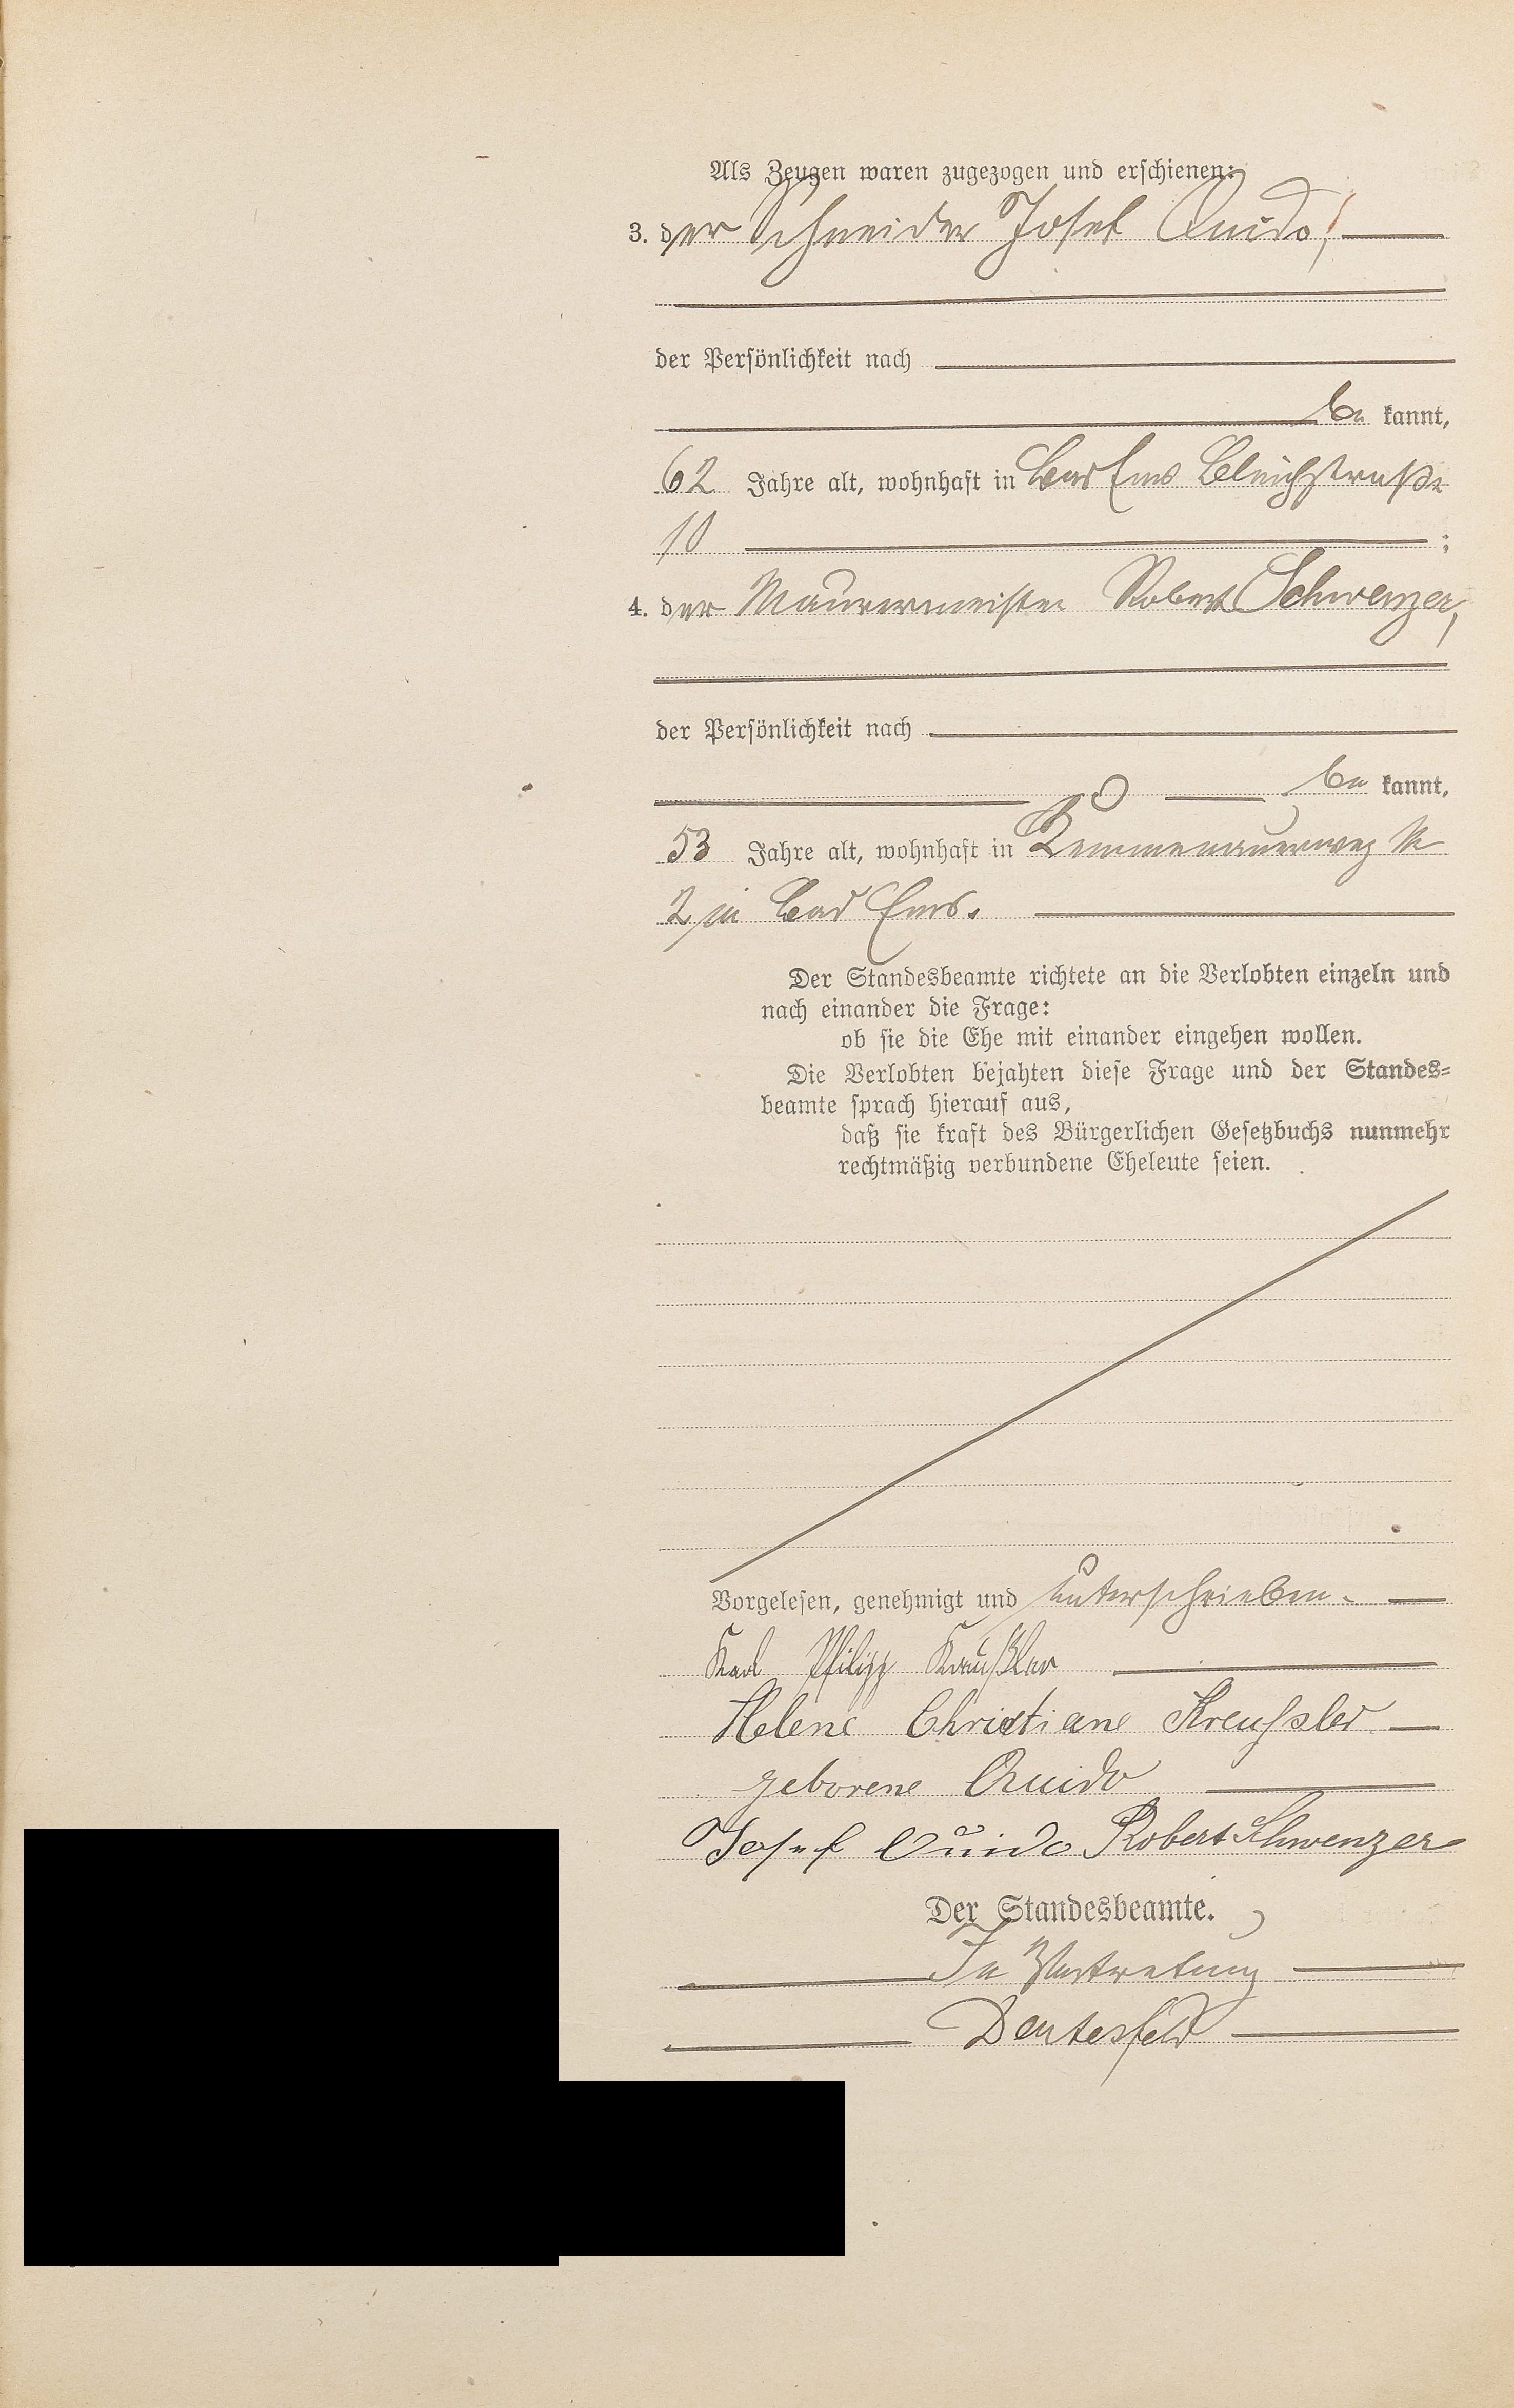 Als Zeugen waren zugezogen und erschienen:
3. der Schneider Josef Quido,
der Persönlichkeit nach
be kannt,
62 Jahre alt, wohnhaft in Bad Ems Bleichstraße
10 ;
4. der Maurermeister Robert Schwenzer,
der Persönlichkeit nach
be kannt,
53 Jahre alt, wohnhaft in Kemmenauerweg No
2 in Bad Ems.
Der Standesbeamte richtete an die Verlobten einzeln und
nach einander die Frage:
ob sie die Ehe mit einander eingehen wollen.
Die Verlobten bejahten diese Frage und der Standes-
beamte sprach hierauf aus,
daß sie kraft des Bürgerlichen Gesetzbuchs nunmehr
rechtmäßig verbundene Eheleute seien.
Vorgelesen, genehmigt und unterschrieben.
Karl Philipp Kreußler
Helene Christiane Kreußler
geborene Quido
Josef Quido Robert Schwenzer
Der Standesbeamte.
In Vertretung
Deutesfeld